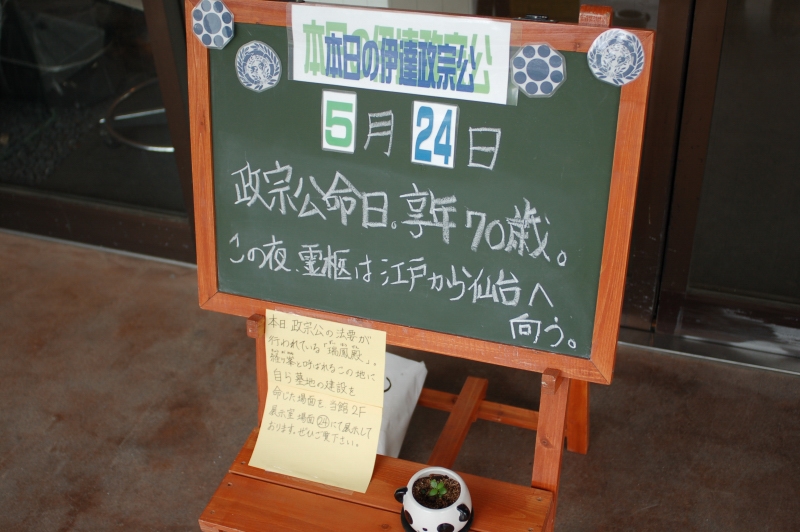 本日の伊達政宗公
5月24日
政宗公命日。享年70歳。
この夜、霊柩は江戸から仙台へ
向う。
本日 政宗公の法要が
行われている「瑞鳳殿」。
経ヶ峯と呼ばれるこの地に
自ら墓地の建設を
命じた場面を 当館2F
展示室 場面㉔にて展示して
おります。ぜひご覧下さい。